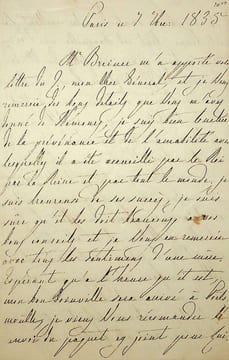 Paris ce 7 Xbre 1835
Mr Breinée m'a apporté votre
lettre du 2, mon cher Général, et je vous
remercie des bons détails que vous m'avez
donné de Nemours, je suis bien touchée
de la prévenance et de l'amabilité avec
lesquelles il a été accueilli par le Roi
par la Reine et par tout le monde, je
suis heureuse de ses succès, je suis
sûre qu'il les doit beaucoup à vos
bons conseils et je vous en remercie
avec tous les sentimens d'une mère,
espérant qu'à l'heure qu'il est
mon bon Joinville sera arrivé à Ports
mouth, je viens vous recommander l'en
voi du paquet cy joint pour lui,